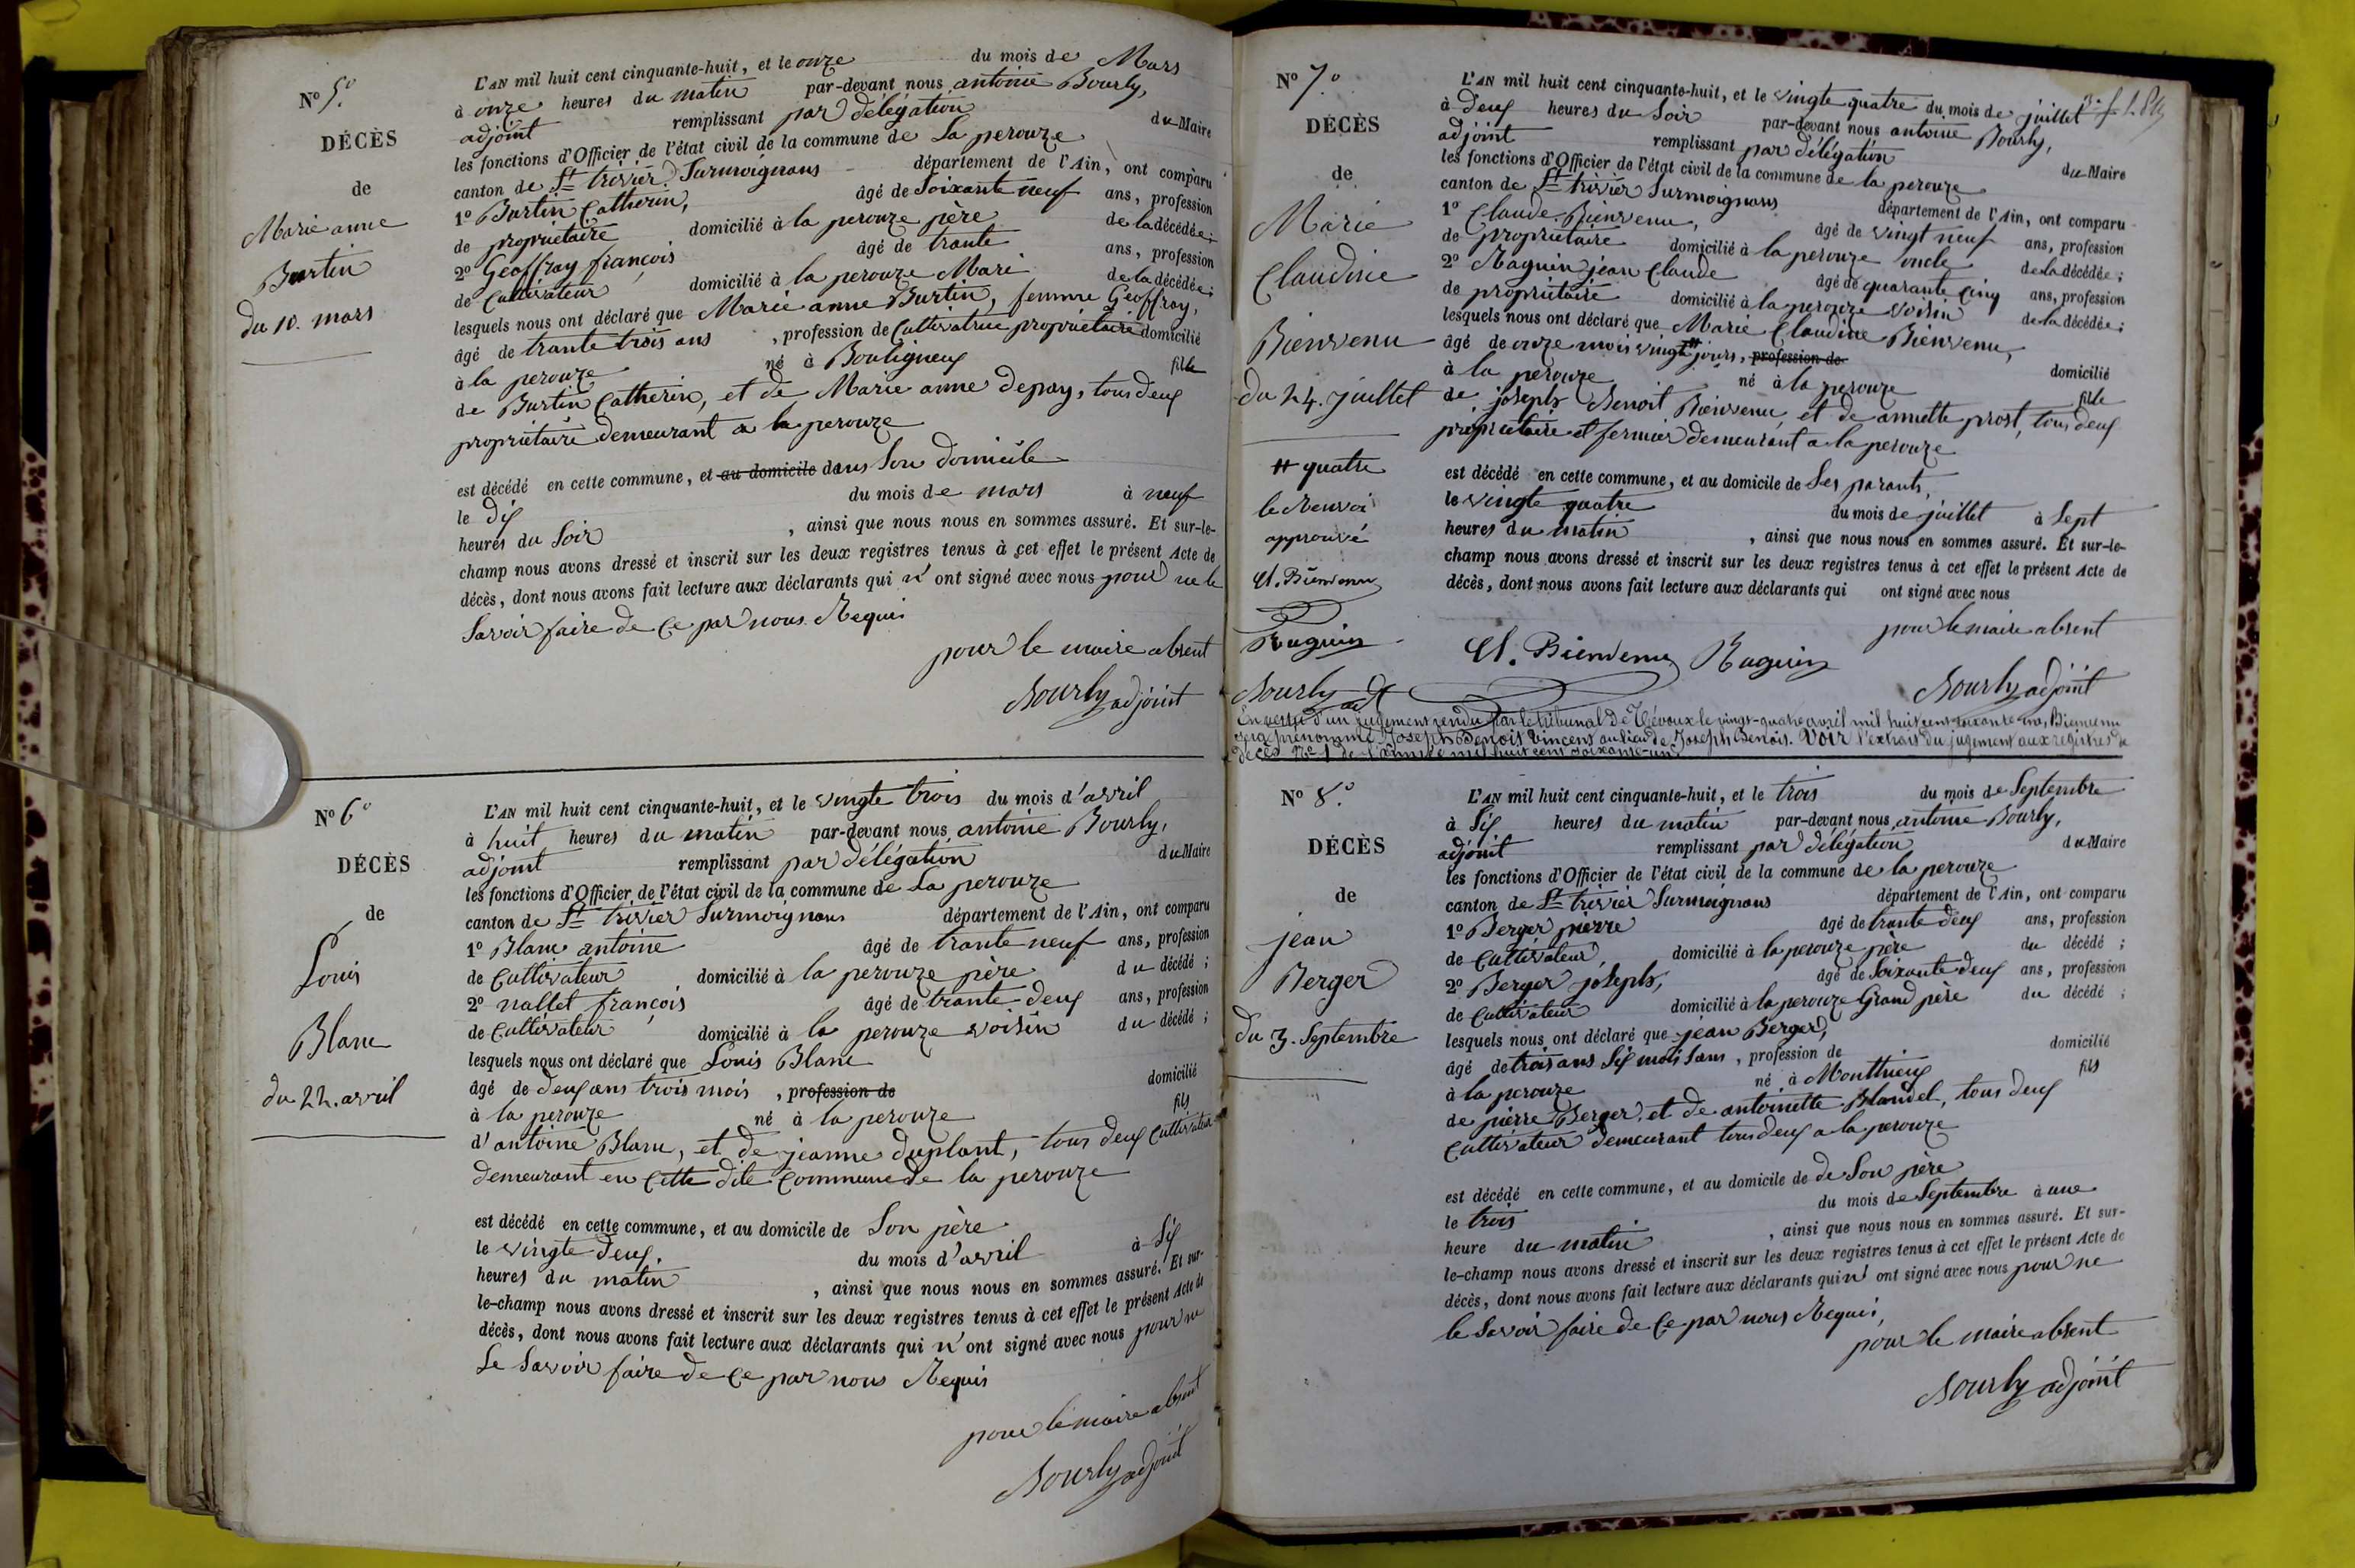 No 5o
DÉCÈS
de
Marie anne
Burtin
du 10. mars
L'AN mil huit cent cinquante-huit, et le onze du mois de Mars
à onze heures du matin par-devant nous antoine Bourly,
adjoint remplissant par délégation du Maire
les fonctions d'Officier de l'état civil de la commune de La perouze
canton de St trivier Surmoignans département de l'Ain, ont comparu
1o Burtin Catherin, âgé de Soixante neuf ans, profession
de propriétaire domicilié à la perouze père de la décédée;
2o Geoffray françois âgé de trante ans, profession
de Cultivateur domicilié à la perouze Mari de la décédée;
lesquels nous ont déclaré que Marie anne Burtin, femme Geoffray,
âgé de trante trois ans , profession de Cultivatrice propriétaire domicilié
à la perouze né à Bouligneux fille
de Burtin Catherin, et de Marie anne depay, tous deux
propriétaire demeurant a la perouze
est décédé en cette commune, et au domicile dans Son domicile
le dix du mois de mars à neuf
heures du Soir , ainsi que nous nous en sommes assuré. Et sur-le-
champ nous avons dressé et inscrit sur les deux registres tenus à cet effet le présent Acte de
décès, dont nous avons fait lecture aux déclarants qui n'ont signé avec nous pour ne le
Savoir faire de Ce par nous Requis
pour le maire absent
Bourly adjoint
No 6o
DÉCÈS
de
Louis
Blanc
du 22. avril
L'AN mil huit cent cinquante-huit, et le vingte trois du mois d'avril
à huit heures du matin par-devant nous antoine Bourly,
adjoint remplissant par délégation du Maire
les fonctions d'Officier de l'état civil de la commune de La perouze
canton de St trivier Surmoignans département de l'Ain, ont comparu
1o Blanc antoine âgé de trante neuf ans, profession
de Cultivateur domicilié à la perouze père du décédé;
2o nallet françois âgé de trante deux ans, profession
de Cultivateur domicilié à la perouze voisin du décédé;
lesquels nous ont déclaré que Louis Blanc
âgé de deux ans trois mois , profession de domicilié
à la perouze né à la perouze fils
d'antoine Blanc, et de jeanne duplant, tous deux Cultivateur
demeurant en Cette dite Commune de la perouze
est décédé en cette commune, et au domicile de Son père
le vingte deux, du mois d'avril à Six
heures du matin , ainsi que nous nous en sommes assuré. Et sur-
le-champ nous avons dressé et inscrit sur les deux registres tenus à cet effet le présent Acte de
décès, dont nous avons fait lecture aux déclarants qui n'ont signé avec nous pour ne
Le Savoir faire de Ce par nous Requis
pour le maire absent
Bourly adjoint
No 7.o
DÉCÈS
de
Marie
Claudine
Bienvenu
du 24. juillet
quatre
le Renvoi
approuvé
Cl. Bienvenu
Raguin
Bourly adt
L'AN mil huit cent cinquante-huit, et le vingte quatre du mois de juillet
à deux heures du Soir par-devant nous antoine Bourly,
adjoint remplissant par délégation du Maire
les fonctions d'Officier de l'état civil de la commune de la perouze
canton de St trivier Surmoignans département de l'Ain, ont comparu
1o Claude Bienvenu, âgé de vingt neuf ans, profession
de propriétaire domicilié à la perouze oncle de la décédée;
2o Raguin jean Claude âgé de quarante Cinq ans, profession
de propriétaire domicilié à la perouze voisin de la décédée;
lesquels nous ont déclaré que Marie Claudine Bienvenu,
âgé de onze mois vingte jours, profession de domicilié
à la perouze né à la perouze fille
de joseph Benoit Bienvenu, et de annette prost, tous deux
propriétaire et fermier demeurant a la perouze
est décédé en cette commune, et au domicile de Ses parants,
le vingte quatre du mois de juillet à Sept
heures du matin , ainsi que nous nous en sommes assuré. Et sur-le-
champ nous avons dressé et inscrit sur les deux registres tenus à cet effet le présent Acte de
décès, dont nous avons fait lecture aux déclarants qui ont signé avec nous
pour le maire absent
Cl. Bienvenu Raguin
Bourly adjoint
En vertu d'un jugement rendu par le tribunal de Trévoux le vingt-quatre avril mil huit cent soixante un, Bienvenu
sera prénommé Joseph Benoit Vincent au lieu de Joseph Benoit. Voir l'extrait du jugement aux registres de
décès No 1 de l'année mil huit cent soixante-un
No 8.o
DÉCÈS
de
jean
Berger
du 3. Septembre
L'AN mil huit cent cinquante-huit, et le trois du mois de Septembre
à Six heures du matin par-devant nous antoine Bourly,
adjoint remplissant par délégation du Maire
les fonctions d'Officier de l'état civil de la commune de la perouze
canton de St trivier Surmoignans département de l'Ain, ont comparu
1o Berger pierre âgé de trante deux ans, profession
de Cultivateur, domicilié à la perouze père du décédé;
2o Berger joseph, âgé de Soixante deux ans, profession
de Cultivateur domicilié à la perouze Grand père du décédé;
lesquels nous ont déclaré que jean Berger,
âgé de trois ans Six mois Sans , profession de domicilié
à la perouze né à Monthieux fils
de pierre Berger, et de antoinette Blandet, tous deux
Cultivateur demeurant tous deux a la perouze
est décédé en cette commune, et au domicile de de Son père
le trois du mois de Septembre à une
heure du matin , ainsi que nous nous en sommes assuré. Et sur-
le-champ nous avons dressé et inscrit sur les deux registres tenus à cet effet le présent Acte de
décès, dont nous avons fait lecture aux déclarants qui n'ont signé avec nous pour ne
le Savoir faire de Ce par nous Requis,
pour le maire absent
Bourly adjoint